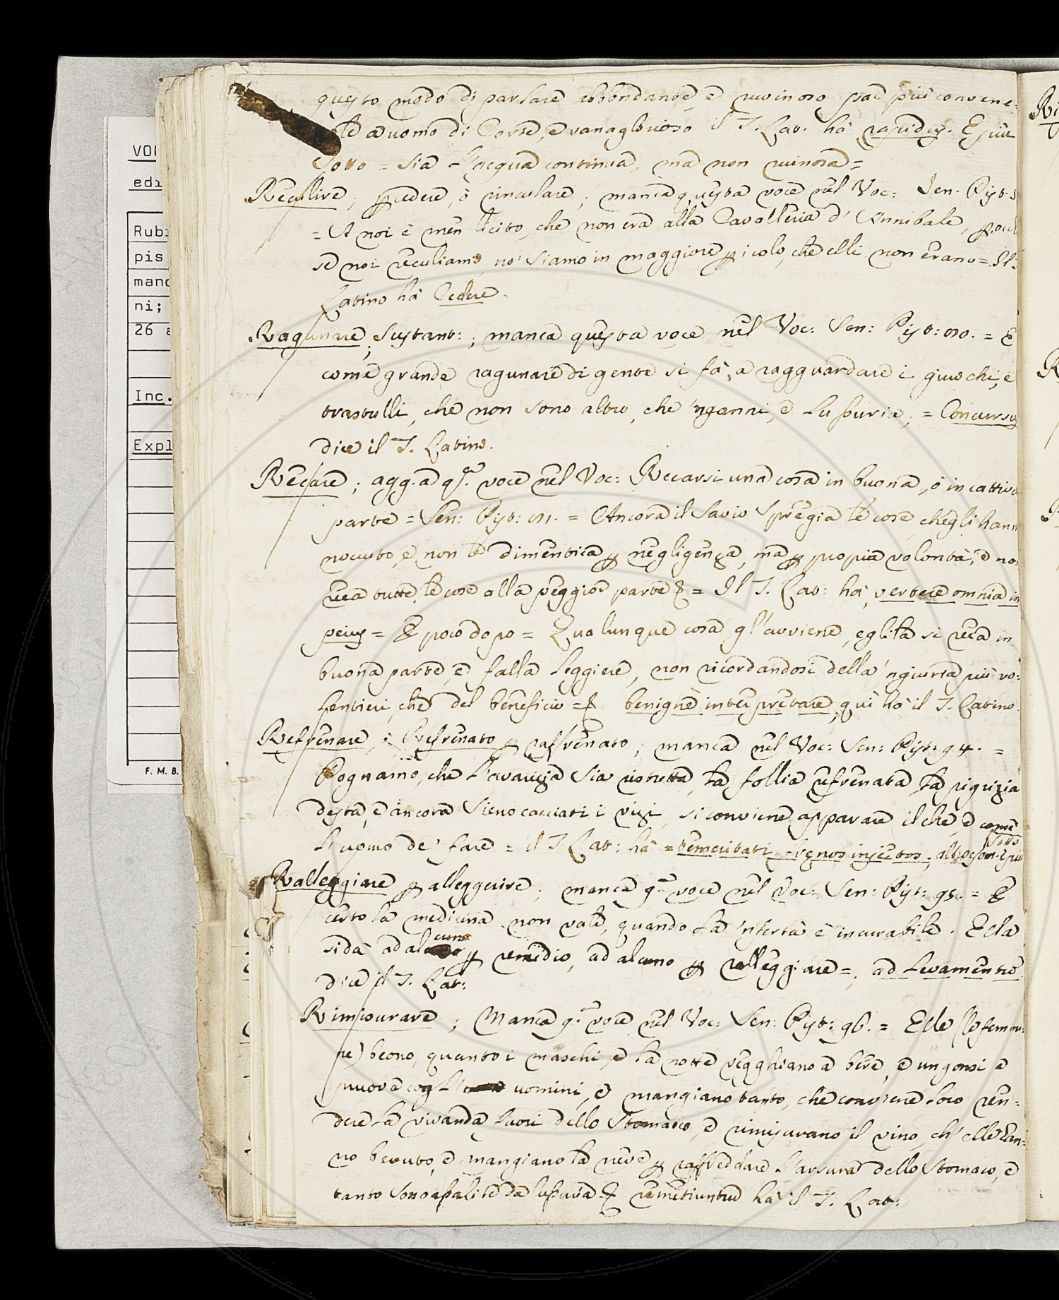 questo modo di parlare abbondante, e ruinoso par più convene-
vole a uomo di Corte, e vanaglorioso il T. Lat. ha rapidus. E più
sotto = Sia l'acqua continua, ma non ruinosa =
Recullire, cedere, o rinculare; manca questa voce nel Voc: Sen. Pist.
= A noi è men licito, che non era alla Cavalleria d'Annibale, 
se noi reculiamo, noi siamo in maggiore pericolo, che elli non erano = Il
Latino ha Cedere.
Ragunare Sustant:; manca questa voce nel Voc: Sen: Pist: = E
come grande ragunare di gente si fa, a ragguardare i giuochi, e
trastulli, che non sono altro, che 'nganni, e lussuria, = Concursus
dice il T. Latino.
Recare; agg. a q.ta voce nel Voc: Recarsi una cosa in buona, o in cattiva
parte = Sen: Pist: = Ancora il Savio spregia le cose, che gli hanno
nociuto, e non le dimentica per negligenza, ma per propria volontà, e non
reca tutte le cose alla peggior parte = Il T. Lat: ha, vertere omnia in
peius = E poco dopo = Qualunque cosa gl'avviene, egli la si reca in
buona parte e falla leggiere, non ricordandosi della 'ngiuria più vo-
lentieri, che del beneficio = benigne interpretare, qui ha il T. Latino.
Refrenare, Refrenato per raffrenato; manca nel Voc: Sen: Pist: 94. =
Pognamo, che l'avarizia sia ristretta, la follia refrenata la pigrizia
desta, e ancora sieno cacciati i vizi, si conviene apparare il che, e come
l'uomo de' fare = il T. Lat: ha = temeritati frenos injectos,
Ralleggiare per alleggerire; manca q.ta voce nel Voc: Sen: Pist: 95. = E
certo la medicina non vale, quando la 'nfertà è incurabile. Ella
si dà ad alcuno per remedio, ad alcuno per ralleggiare =, ad levamentum
dice il T. Lat:
Rimisurare; Manca q.ta voce nel Voc: Sen: Pist: 96. = Elle (le femmi-
ne) beono, quanto i maschi, e la notte vegghiano a bere, e ungonsi a
pruova cogli uomini, e mangiano tanto, che conviene loro ren-
dere la vivanda fuori dello Stomaco, e rimisurano il vino, ch'elle han-
no bevuto, e mangiano la neve per raffreddare l'arsura dello Stomaco, e
tanto sono assalite da lussuria remetiuntur ha il T. Lat:
VO
edi
Rub
pis
mand
ni;
26 a
Inc.
Expl
F. M. B.